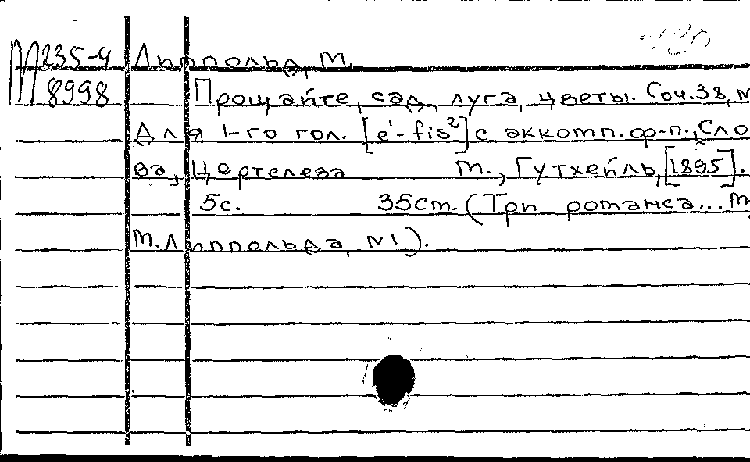 М235-4 Липпольд, М.
8998 Прощайте, сад, луга, цветы. Соч.38, N
Для 1-го гол. [e'-fis²] с аккомп. ф-п., Сло
ва, Цертелева М., Гутхейль, [1895].
5с. 35см. (Три романса... М,
М. Липпольда, N1).